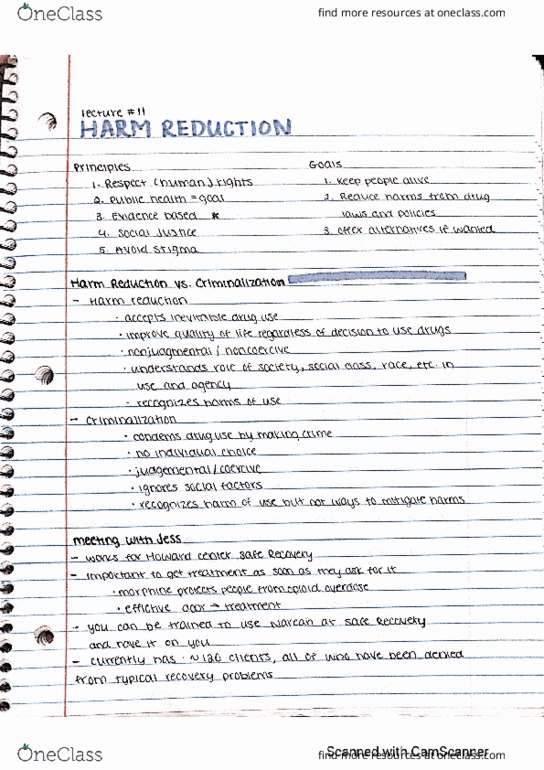 OneClass
find more resources at oneclass.com
lecture #11
HARM REDUCTION
Principles
Goals
1. Respect (human) rights
1. Keep people alive
2. Public health = goal
2. Reduce harms from drug
3. Evidence based *
laws and policies
4. Social Justice
3. Offer alternatives if wanted
5. Avoid stigma
Harm Reduction vs. Criminalization
- Harm reduction
· accepts inevitable drug use
· improve quality of life regardless of decision to use drugs
· nonjudgmental / noncoercive
· understands role of society, social class, race, etc. in
use and agency
· recognizes harms of use
- Criminalization
· condems drug use by making crime
· no individual choice
· judgemental / coercive
· ignores social factors
· recognizes harm of use but not ways to mitigate harms
meeting with Jess
- works for Howard center safe Recovery
- important to get treatment as soon as they ask for it
· morphine protects people from opioid overdose
· effective door → treatment
- you can be trained to use Narcan at safe Recovery
and have it on you
- currently has ~136 clients, all of who have been denied
from typical recovery problems
Scanned with CamScanner
OneClass
find more resources at oneclass.com